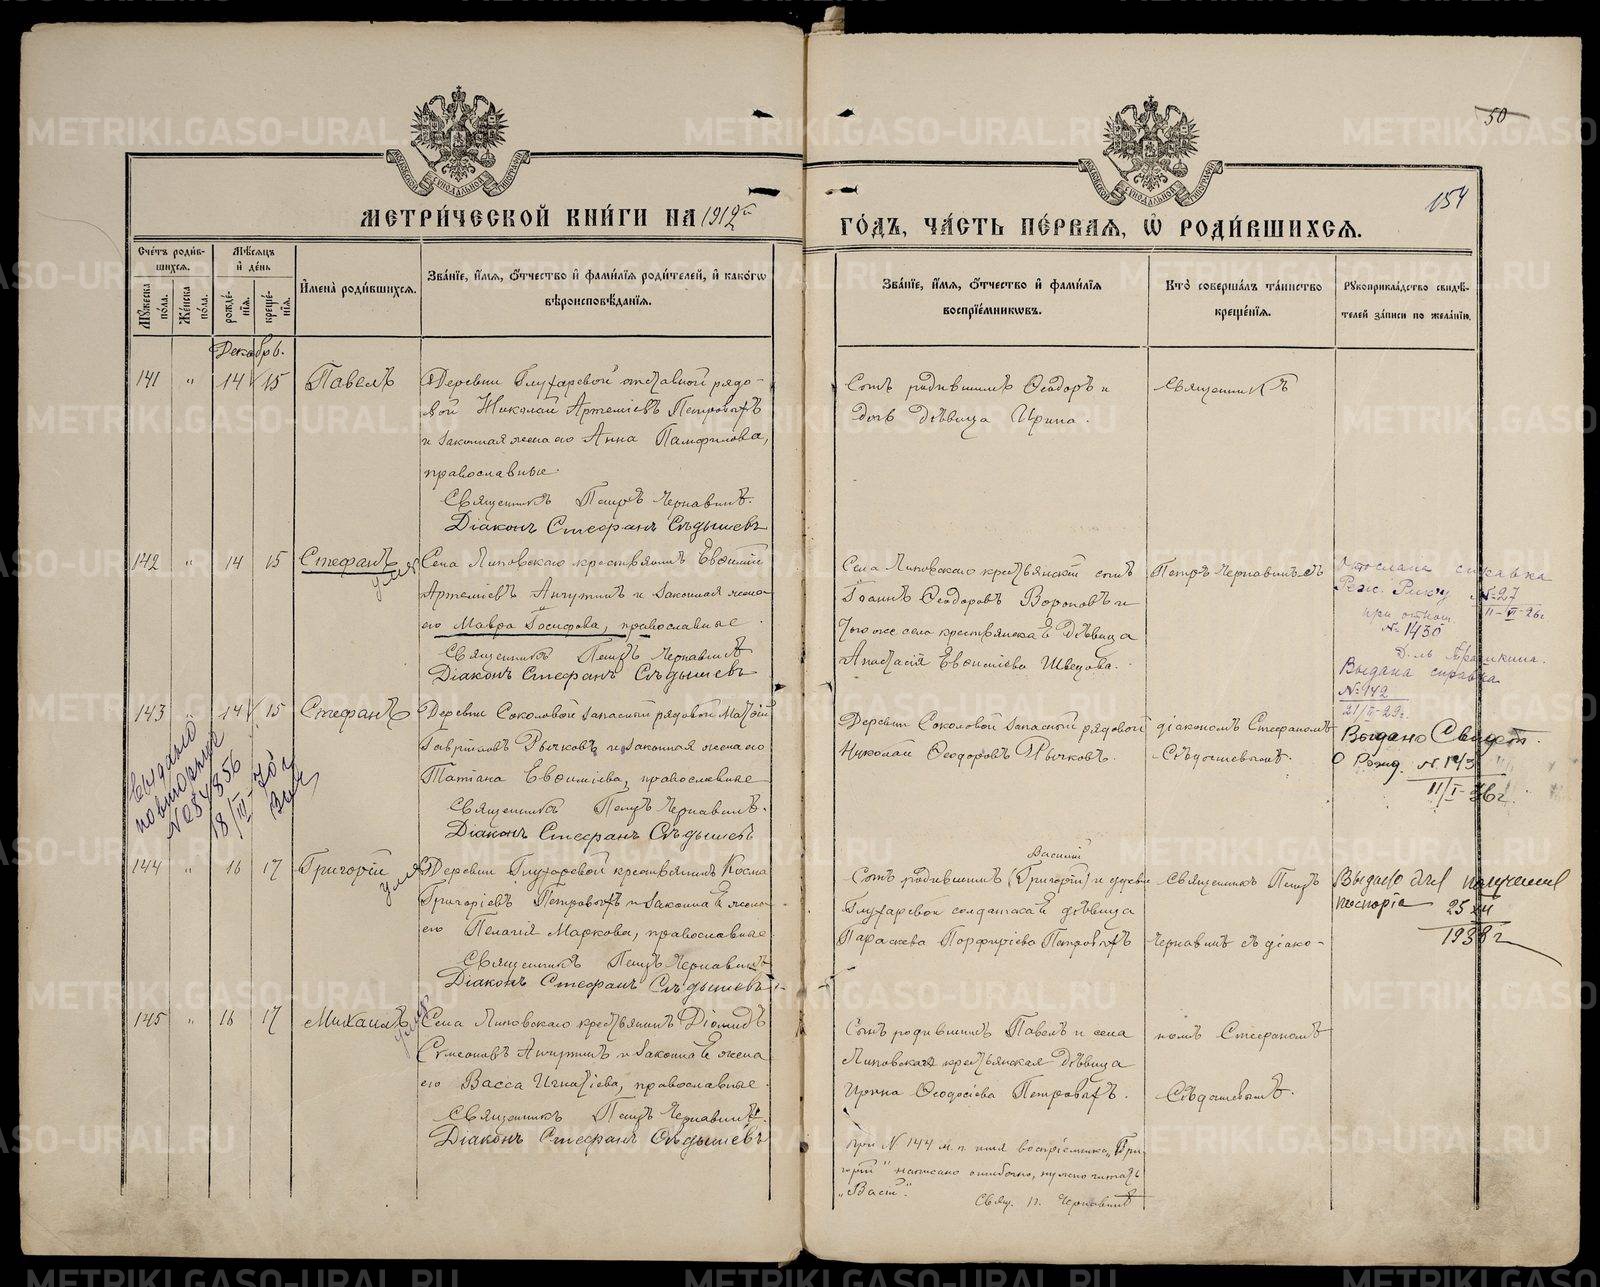 50
154
МЕТРИ́ЧЕСКОЙ КНИ́ГИ НА 1912й
ГО́ДЪ, ЧА́СТЬ ПЕ́РВАЯ, Ѡ РОДИ́ВШИХСЯ.
Сче́тъ роди́вшихся.
Мꙋ́жеска по́ла.
Же́нска по́ла.
Мѣ́сяцъ и҆ де́нь
рожде́нїя.
креще́нїя.
И҆мена̀ роди́вшихся.
Зва́нїе, и҆́мя, ѻ҆́тчество и҆ фами́лїя роди́телей, и҆ како́гѡ
вѣроисповѣ́данїя.
Зва́нїе, и҆́мя, ѻ҆́тчество и҆ фами́лїя
воспрїе́мникѡвъ.
Кто̀ соверша́лъ та́инство
креще́нїя.
Рꙋкоприкла́дство свидѣ́-
телей за́писи по жела́нїю.
Декабрь.
141 " 14 15 Павелъ
Деревни Глухаревой отставной рядо-
вой Николай Артемiевъ Петровыхъ
и законная жена его Анна Памфилова,
православные.
Священникъ Петръ Чернавинъ.
Дiаконъ Стефанъ Сѣдышевъ
Сынъ родившимъ Ѳеодоръ и
дочь дѣвица Ирина.
Священникъ
142 " 14 15 Стефанъ
умеръ
Села Липовскаго крестьянинъ Евѳимiй
Артемiевъ Анчутинъ и законная жена
его Мавра Iосифова, православные.
Священникъ Петръ Чернавинъ
Дiаконъ Стефанъ Сѣдышевъ
Села Липовскаго крестьянскiй сынъ
Iоаннъ Ѳеодоровъ Вороновъ и
того же села крестьянская дѣвица
Анастасiя Евѳимiева Швецова.
Петръ Чернавинъ съ
Отослана справка
Реж. Рику № 27
11-II-26г
при отнош.
№ 1430
Выдана справка
№ 142
21/II-29г.
143 14 15 Стефанъ
Деревни Соколовой запасный рядовой Матѳiй
Гаврiиловъ Рычковъ и законная жена его
Татiана Евѳимiева, православные
Священникъ Петръ Чернавинъ.
Дiаконъ Стефанъ Сѣдышевъ
Деревни Соколовой запасный рядовой
Николай Ѳеодоровъ Рычковъ.
дiакономъ Стефаномъ
Сѣдышевымъ.
Выдано Свидет.
О Рожд. № 143
11/I-36г.
Выдано
повторное
№ 084856
18/III-70г
144 " 16 17 Григорiй
умеръ
Деревни Глухаревой крестьянинъ Косма
Григорiевъ Петровыхъ и законная жена
его Пелагiя Маркова, православные
Священникъ Петръ Чернавинъ
Дiаконъ Стефанъ Сѣдышевъ
Василiй
Сынъ родившимъ (Григорiй) и деревни
Глухаревой солдатская дѣвица
Параскева Порфирiева Петровыхъ
Священникъ Петръ
Чернавинъ съ дiако-
Выдано для получения
паспорта 25/XII
1938г
145 " 16 17 Михаилъ
умеръ
Села Липовскаго крестьянинъ Дiомидъ
Симеоновъ Анчутинъ и законная жена
его Васса Игнатiева, православные.
Священникъ Петръ Чернавинъ.
Дiаконъ Стефанъ Сѣдышевъ
Сынъ родившимъ Павелъ и села
Липовскаго крестьянская дѣвица
Ирина Ѳеодосiева Петровыхъ.
номъ Стефаномъ
Сѣдышевымъ.
При № 144 м. п. имя воспрiемника „Гри-
горiй" написано ошибочно, нужно читать
„Васил".
Свящ. П. Чернавинъ
METRIKI.GASO-URAL.RU